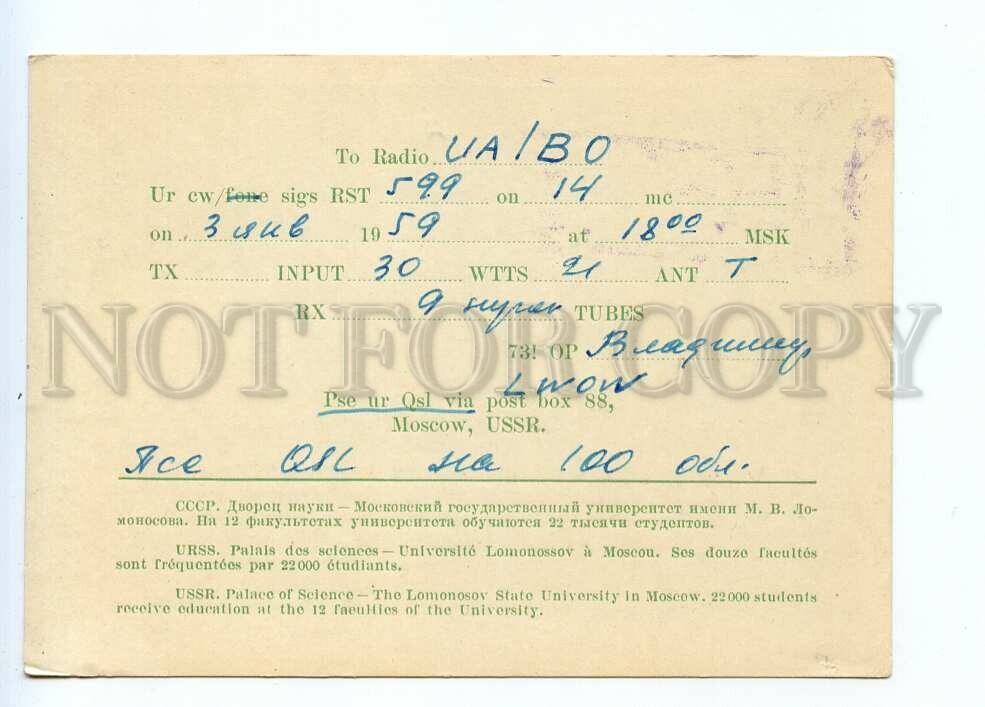 To Radio UA1BO
Ur cw/fone sigs RST 599 on 14 mc
on 3 янв 1959 at 18 00 MSK
TX INPUT 30 WTTS 21 ANT T
RX 9 супер TUBES
NOT FOR COPY
73! OP Владимир
LWOW
Pse ur Qsl via post box 88,
Moscow, USSR.
Pse QSL на 100 обл.
СССР. Дворец науки — Московский государственный университет имени М. В. Ло-
моносова. На 12 факультетах университета обучаются 22 тысячи студентов.
URSS. Palais des sciences — Université Lomonossov à Moscou. Ses douze facultés
sont fréquentées par 22000 étudiants.
USSR. Palace of Science — The Lomonosov State University in Moscow. 22000 students
receive education at the 12 faculties of the University.